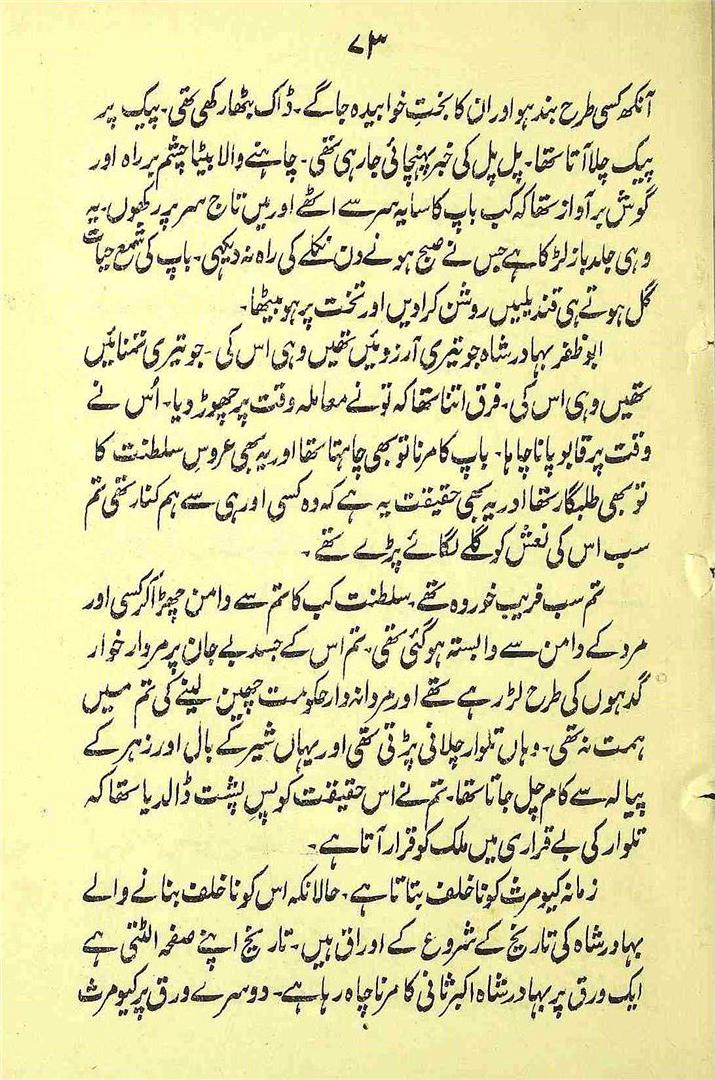 ۷۳
آنکھ کسی طرح بند ہو اور ان کا بختِ خوابیدہ جاگے۔ ڈاک بٹھا رکھی تھی۔ پیک پر
پیک چلا آتا تھا۔ پل پل کی خبر پہنچائی جارہی تھی۔ چاہنے والا بیٹا چشم بر راہ اور
گوش بر آواز تھا کہ کب باپ کا سایہ سر سے اٹھے اور میں تاج سر پر رکھوں۔ یہ
وہی جلد باز لڑکا ہے جس نے صبح ہونے دن نکلنے کی راہ نہ دیکھی۔ باپ کی شمع حیات
گل ہوتے ہی قندیلیں روشن کرادیں اور تخت پر ہو بیٹھا۔
ابو ظفر بہادر شاہ جو تیری آرزوئیں تھیں وہی اس کی۔ جو تیری تمنائیں
تھیں وہی اس کی۔ فرق اتنا تھا کہ تو نے معاملہ وقت پر چھوڑ دیا۔ اُس نے
وقت پر قابو پانا چاہا۔ باپ کا مرنا تو بھی چاہتا تھا اور یہ بھی عروسِ سلطنت کا
تو بھی طلبگار تھا اور یہ بھی حقیقت یہ ہے کہ وہ کسی اور ہی سے ہم کنار تھی تم
سب اس کی نعش کو گلے لگائے پڑے تھے۔
تم سب فریب خوردہ تھے۔ سلطنت کب کا تم سے دامن چھڑا کر کسی اور
مرد کے دامن سے وابستہ ہوگئی تھی۔ تم اس کے جسد بے جان پر مردار خوار
گدہوں کی طرح لڑ رہے تھے اور مردانہ وار حکومت چھین لینے کی تم میں
ہمت نہ تھی۔ وہاں تلوار چلانی پڑتی تھی اور یہاں شیر کے بال اور زہر کے
پیالہ سے کام چل جاتا تھا۔ تم نے اس حقیقت کو پسِ پشت ڈالدیا تھا کہ
تلوار کی بے قراری میں ملک کو قرار آتا ہے۔
زمانہ کیومرث کو ناخلف بتاتا ہے۔ حالانکہ اس کو ناخلف بنانے والے
بہادر شاہ کی تاریخ کے شروع کے اوراق ہیں۔ تاریخ اپنے صفحہ الٹتی ہے
ایک ورق پر بہادر شاہ اکبر ثانی کا مرنا چاہ رہا ہے۔ دوسرے ورق پر کیومرث